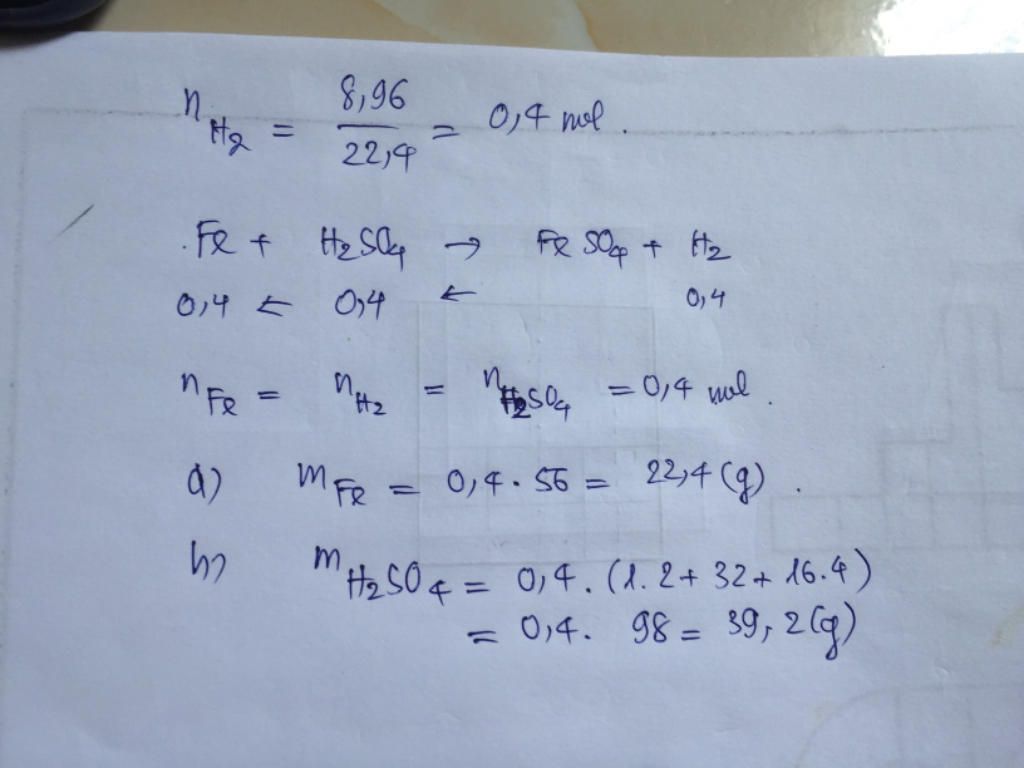 n H₂ = 8,96 / 22,4 = 0,4 mol.
Fe + H₂SO₄ → FeSO₄ + H₂
0,4 ← 0,4 ← 0,4
n Fe = n H₂ = n H₂SO₄ = 0,4 mol.
a) m Fe = 0,4 . 56 = 22,4 (g).
b) m H₂SO₄ = 0,4 . (1.2 + 32 + 16.4)
= 0,4 . 98 = 39,2 (g)